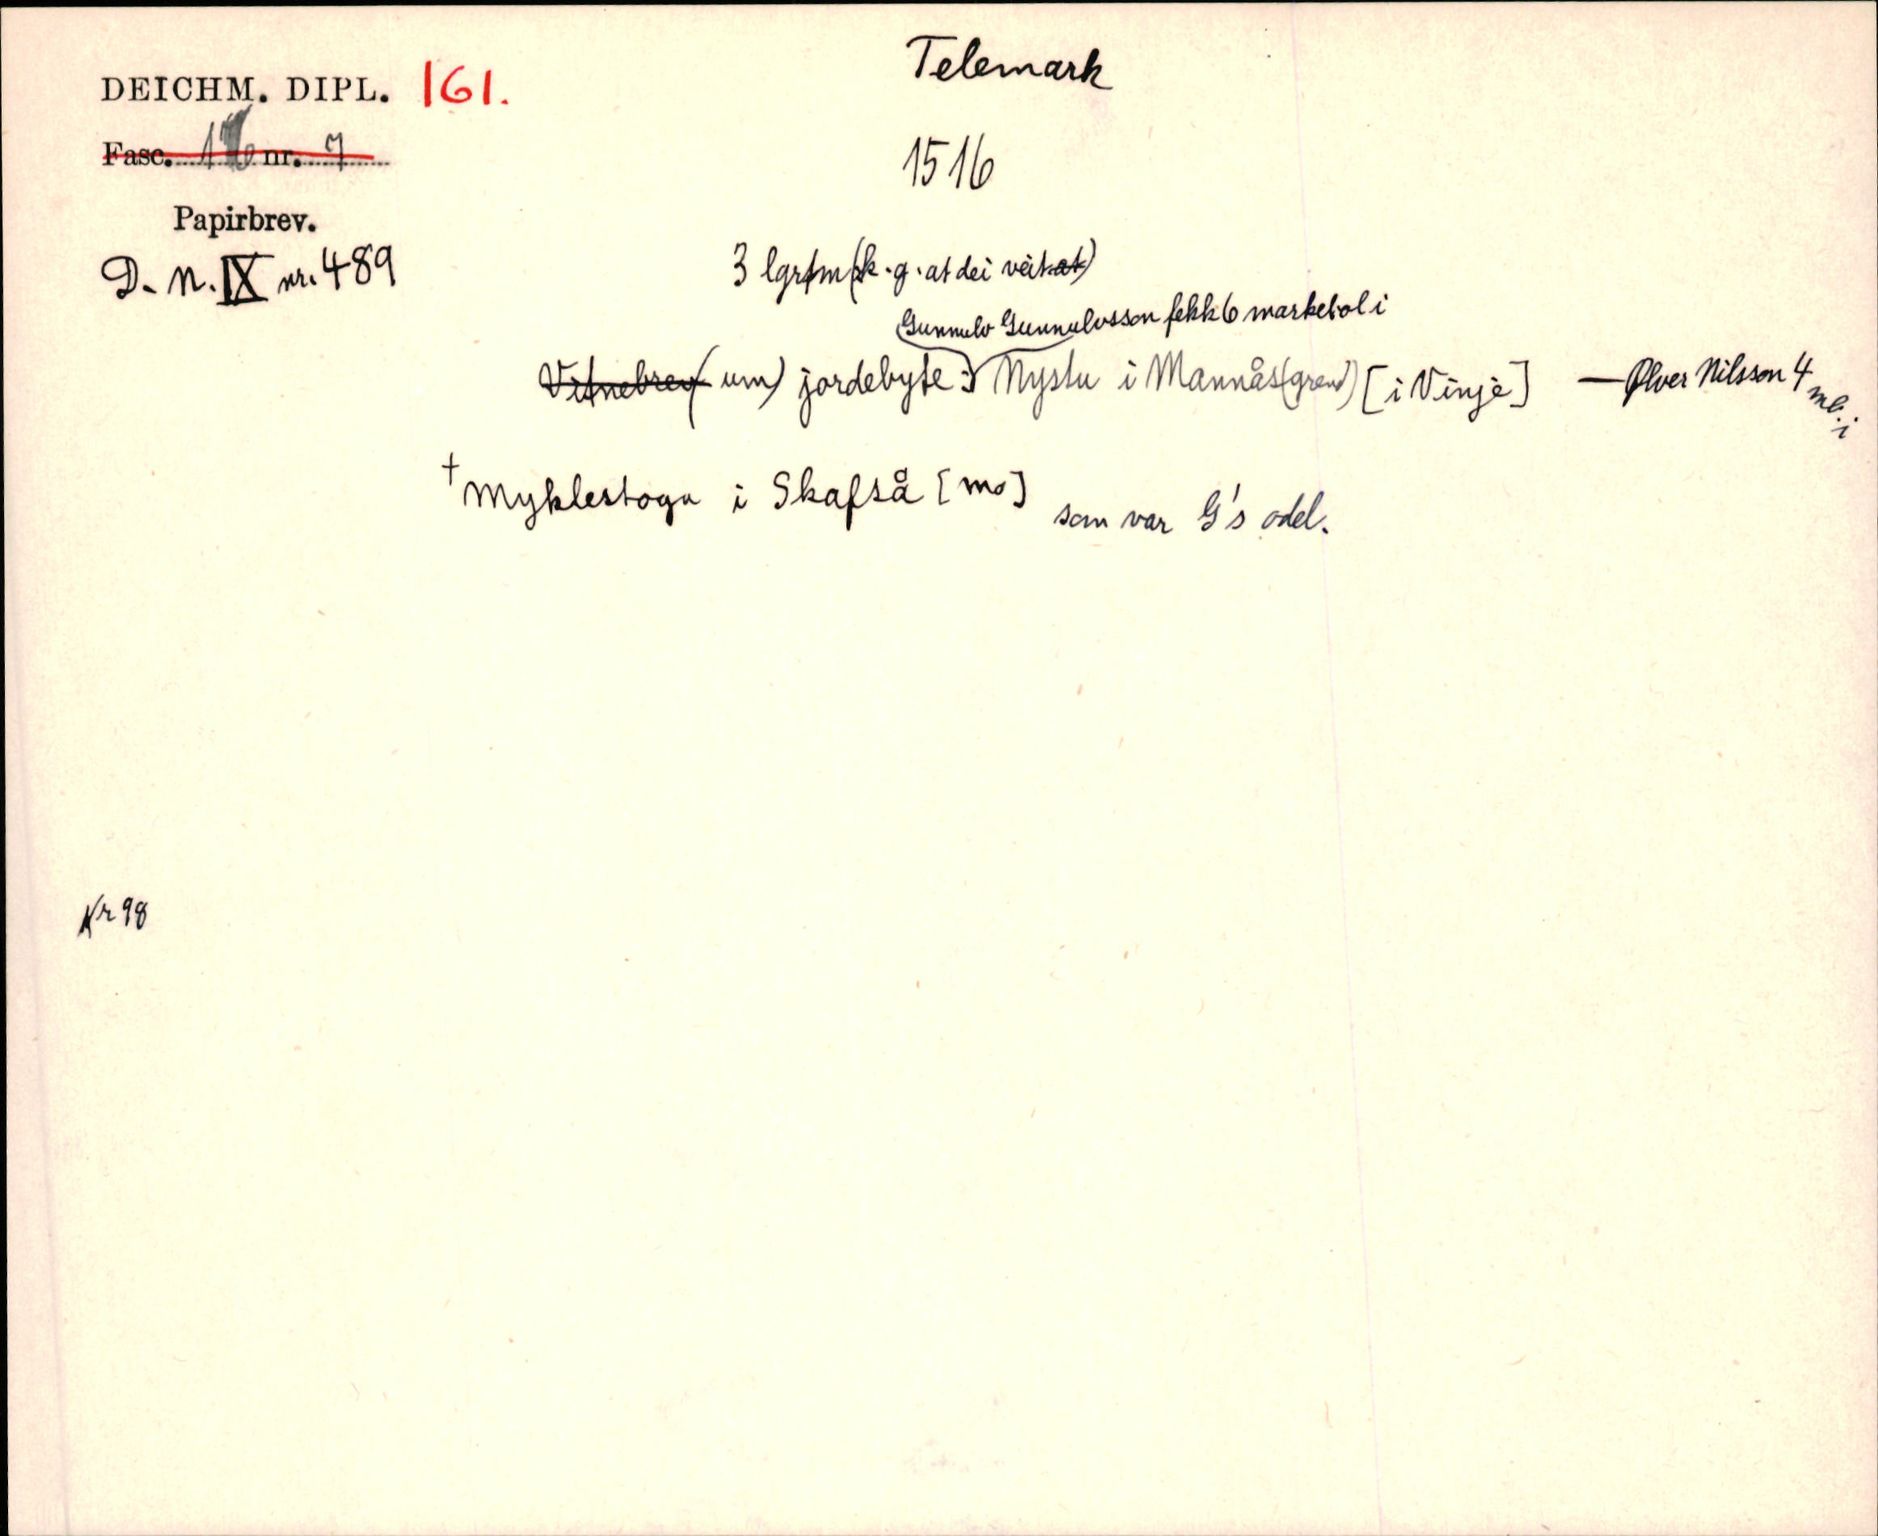 Telemark
DEICHM. DIPL. 161.
1516
Fasc. nr. 7
Papirbrev.
D. N. IX nr. 489
3 lgrtm (k. g. at dei veit at)
Gunnulv Gunnulvsson fekk 6 markebol i
Vitnebrev (um) jordebyte: Nystu i Mannås(grend) [i Vinje] — Ølver Nilsson 4 mb. i
† Myklestoga i Skafså [Mo] som var G's odel.
Kr 98